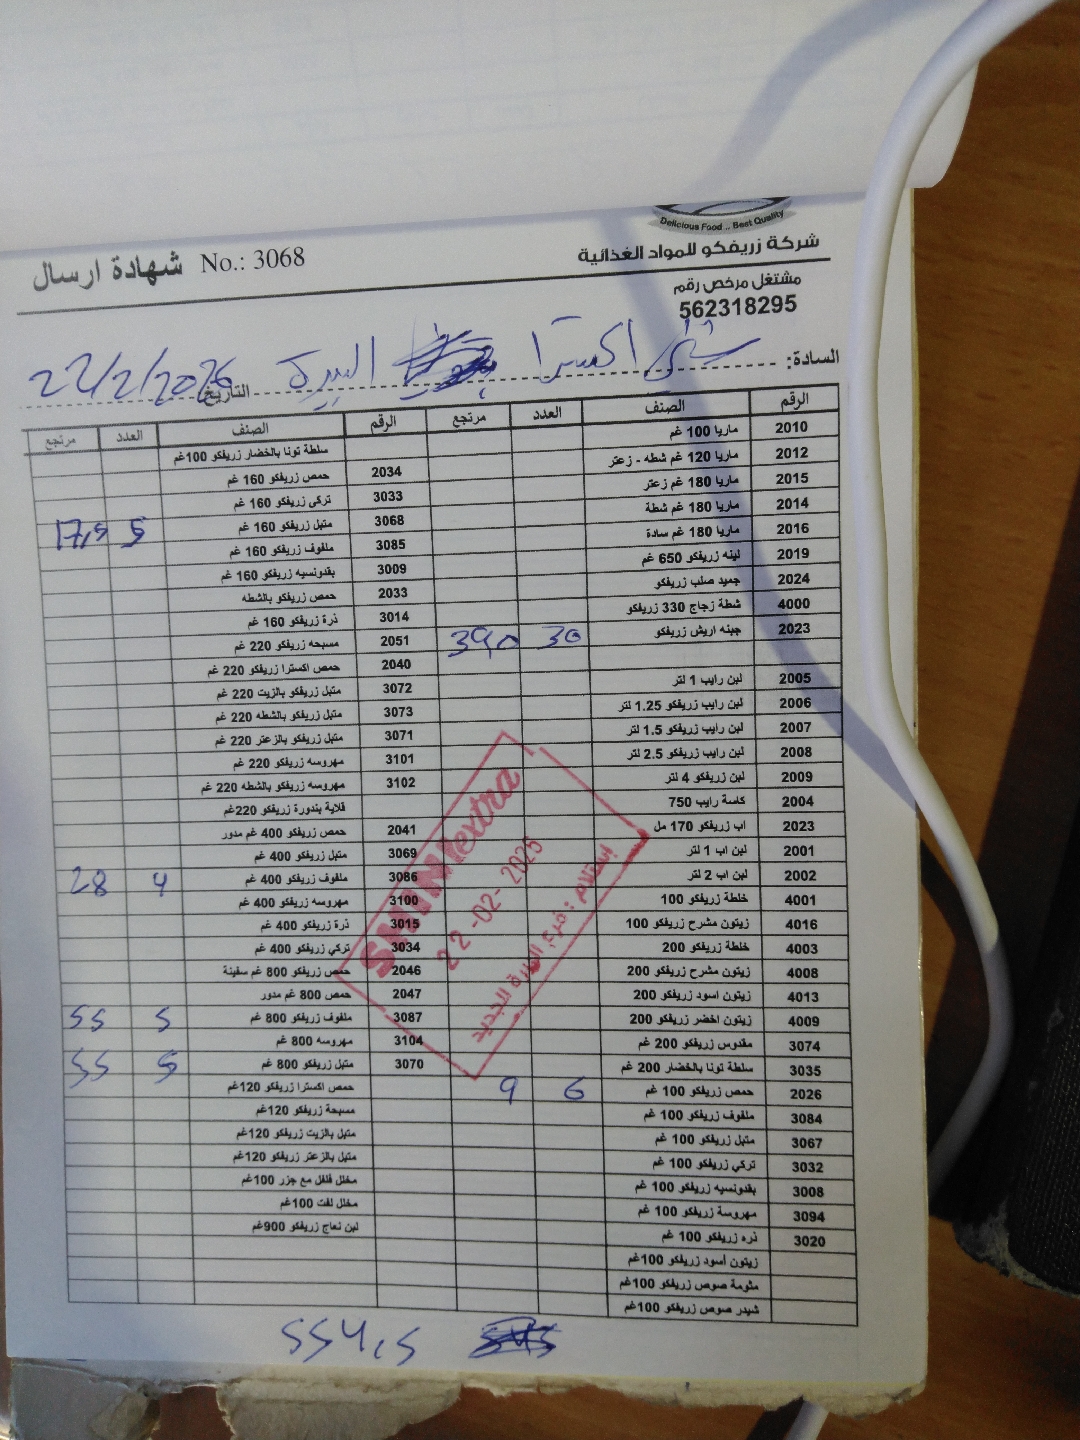 Delicious Food .. Best Quality
شركة زريفكو للمواد الغذائية
شهادة ارسال No.: 3068
مشتغل مرخص رقم
562318295
السادة: سمني اكسترا البيرة التاريخ 22/2/2026
الرقم الصنف العدد مرتجع الرقم الصنف العدد مرتجع
2010 ماريا 100 غم سلطة تونا بالخضار زريفكو 100غم
2012 ماريا 120 غم شطه - زعتر 2034 حمص زريفكو 160 غم
2015 ماريا 180 غم زعتر 3033 تركي زريفكو 160 غم
2014 ماريا 180 غم شطة 3068 متبل زريفكو 160 غم 5 17,5
2016 ماريا 180 غم سادة 3085 ملفوف زريفكو 160 غم
2019 لبنه زريفكو 650 غم 3009 بقدونسيه زريفكو 160 غم
2024 جميد صلب زريفكو 2033 حمص زريفكو بالشطه
4000 شطة زجاج 330 زريفكو 3014 ذرة زريفكو 160 غم
2023 جبنه اريش زريفكو 30 390 2051 مسبحه زريفكو 220 غم
2040 حمص اكسترا زريفكو 220 غم
2005 لبن رايب 1 لتر 3072 متبل زريفكو بالزيت 220 غم
2006 لبن رايب زريفكو 1.25 لتر 3073 متبل زريفكو بالشطه 220 غم
2007 لبن رايب زريفكو 1.5 لتر 3071 متبل زريفكو بالزعتر 220 غم
2008 لبن رايب زريفكو 2.5 لتر 3101 مهروسه زريفكو 220 غم
2009 لبن زريفكو 4 لتر 3102 مهروسه زريفكو بالشطه 220 غم
2004 كاسة رايب 750 قلاية بندورة زريفكو 220غم
2023 اب زريفكو 170 مل 2041 حمص زريفكو 400 غم مدور
2001 لبن اب 1 لتر 3069 متبل زريفكو 400 غم
2002 لبن اب 2 لتر 3086 ملفوف زريفكو 400 غم 4 28
4001 خلطة زريفكو 100 3100 مهروسه زريفكو 400 غم
4016 زيتون مشرح زريفكو 100 3015 ذرة زريفكو 400 غم
4003 خلطة زريفكو 200 3034 تركي زريفكو 400 غم
4008 زيتون مشرح زريفكو 200 2046 حمص زريفكو 800 غم سفينة
4013 زيتون اسود زريفكو 200 2047 حمص 800 غم مدور
4009 زيتون اخضر زريفكو 200 3087 ملفوف زريفكو 800 غم 5 55
3074 مقدوس زريفكو 200 غم 3104 مهروسه 800 غم
3035 سلطة تونا بالخضار 200 غم 3070 متبل زريفكو 800 غم 5 55
2026 حمص زريفكو 100 غم 6 9 حمص اكسترا زريفكو 120غم
3084 ملفوف زريفكو 100 غم مسبحة زريفكو 120غم
3067 متبل زريفكو 100 غم متبل بالزيت زريفكو 120غم
3032 تركي زريفكو 100 غم متبل بالزعتر زريفكو 120غم
3008 بقدونسيه زريفكو 100 غم مخلل فلفل مع جزر 100غم
3094 مهروسة زريفكو 100 غم مخلل لفت 100غم
3020 ذره زريفكو 100 غم لبن نعاج زريفكو 900غم
زيتون أسود زريفكو 100غم
مثومة صوص زريفكو 100غم
شيدر صوص زريفكو 100غم
SMINIextra
22-02-2025
إستلام : فرع البيرة الجديد
554,5